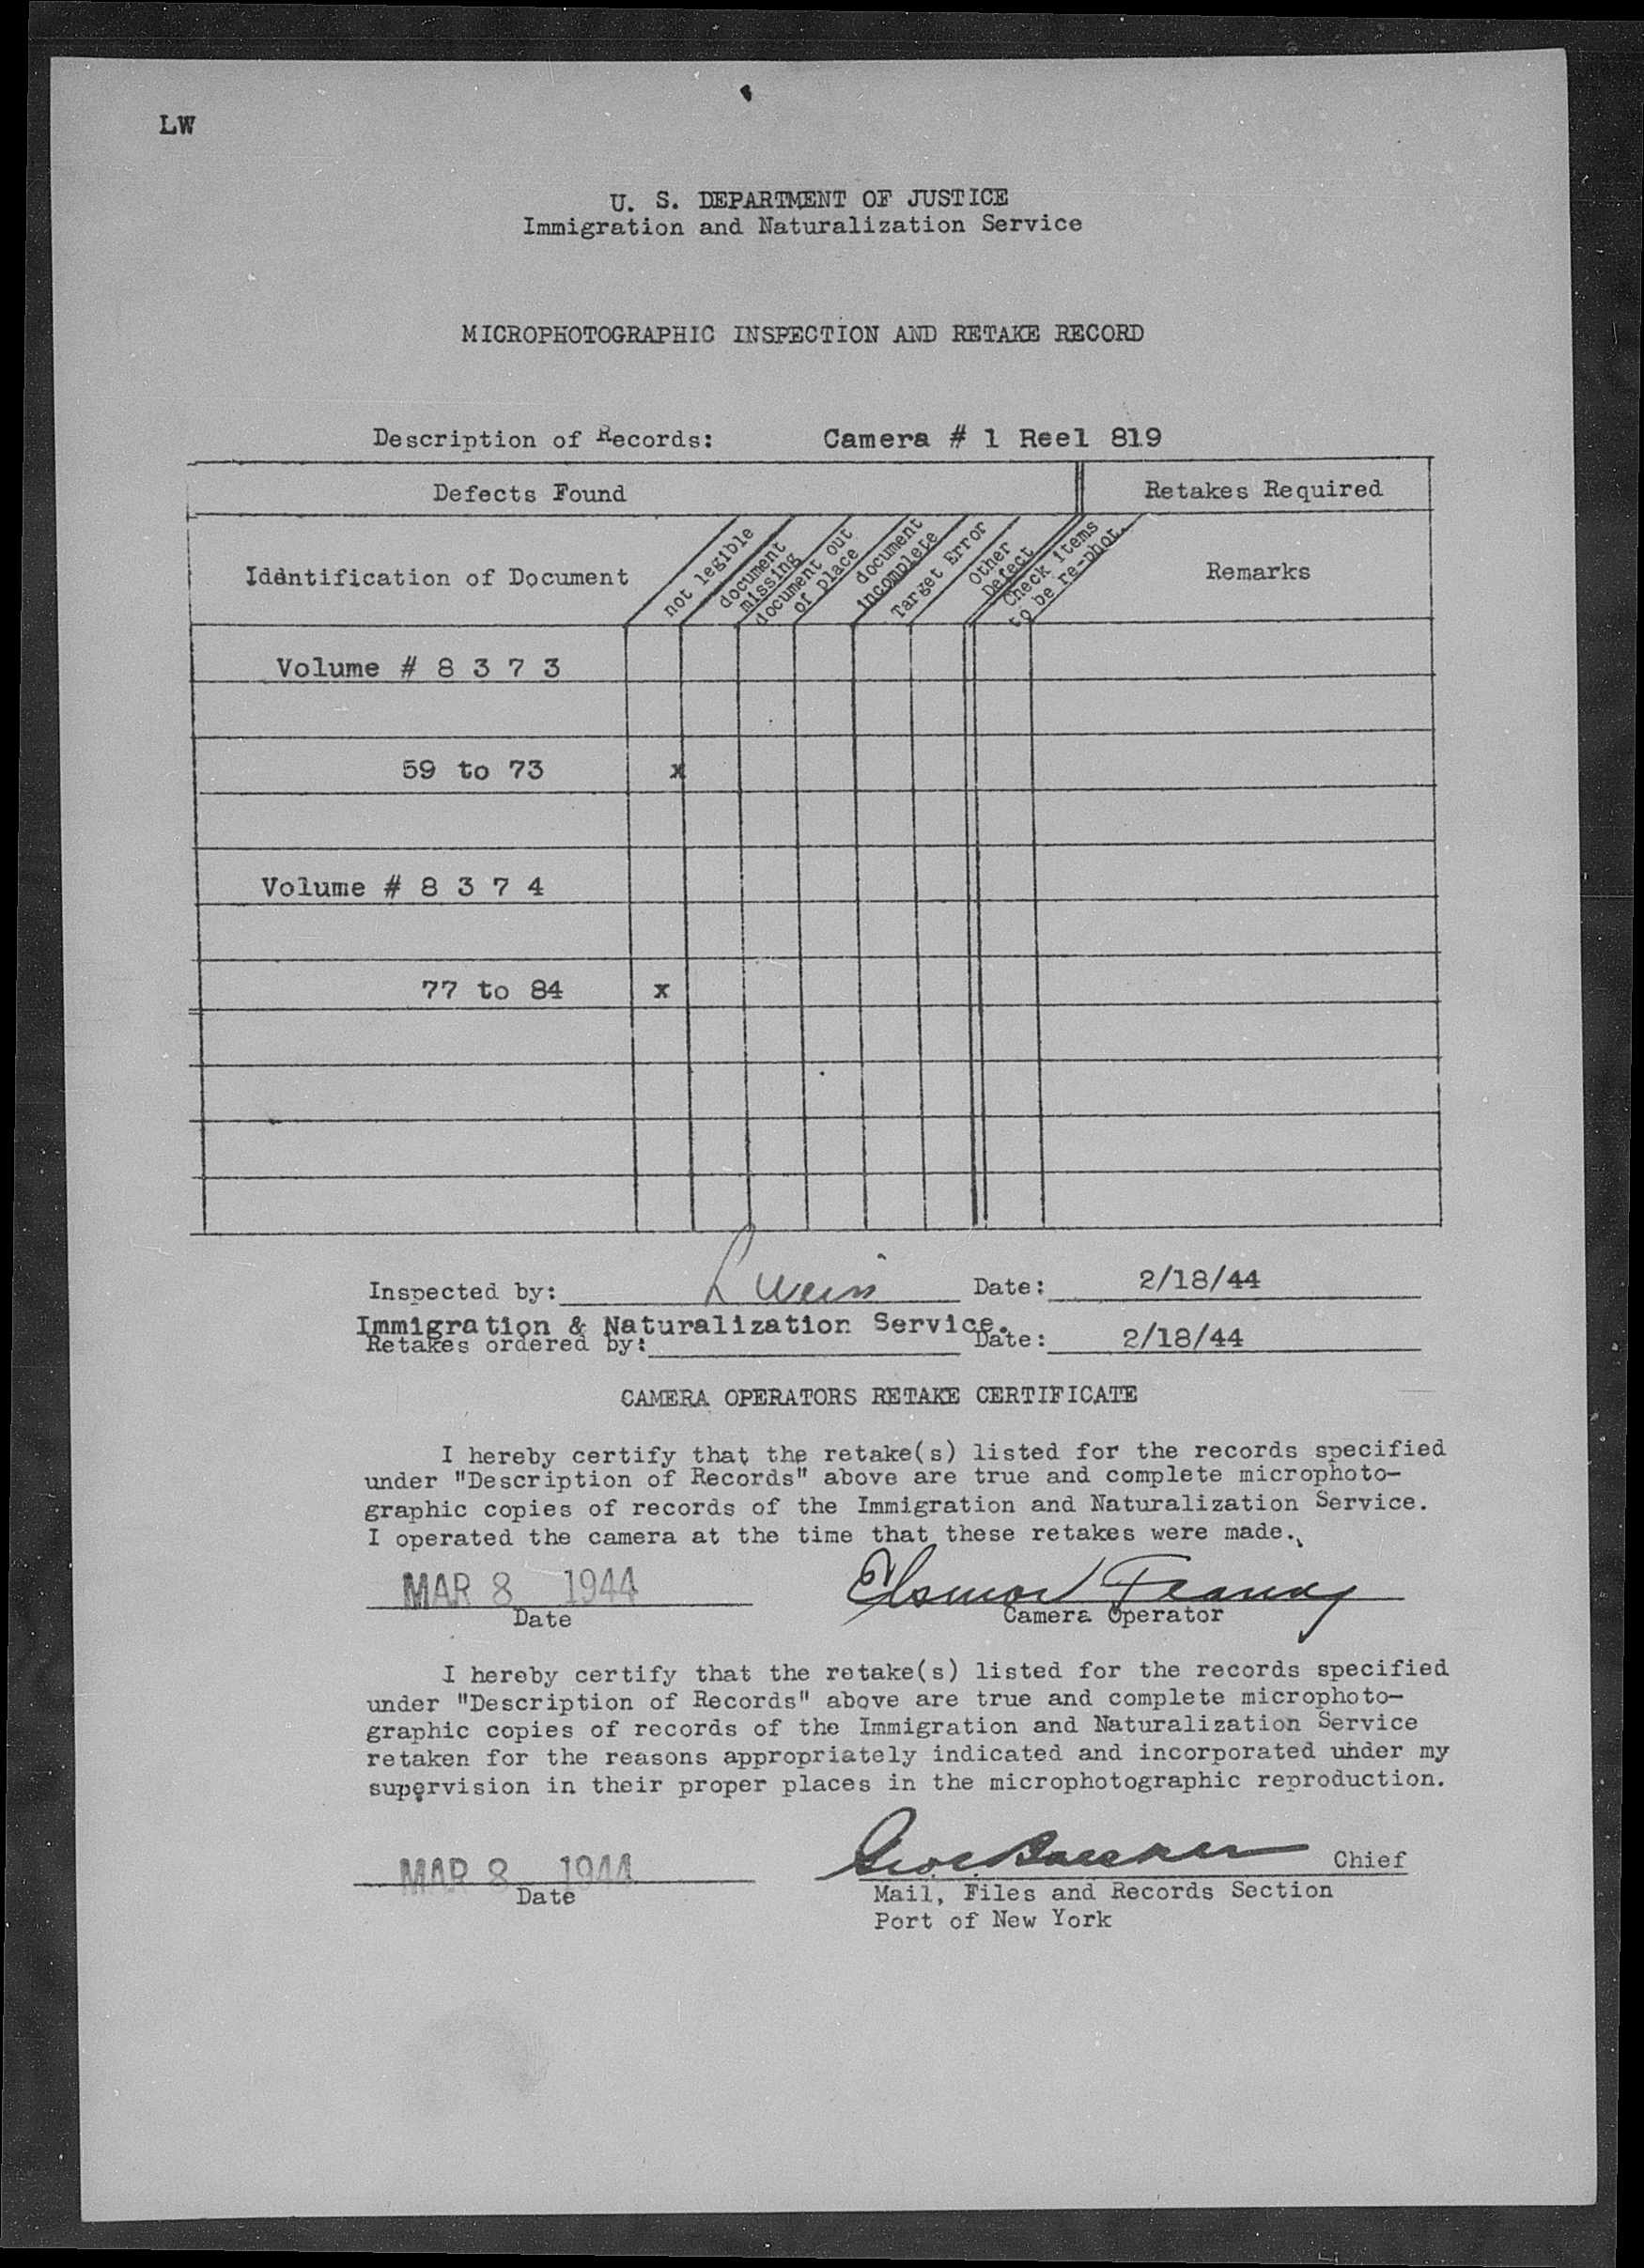 LW
U. S. DEPARTMENT OF JUSTICE
Immigration and Naturalization Service
MICROPHOTOGRAPHIC INSPECTION AND RETAKE RECORD
Description of Records: Camera # 1 Reel 819
Defects Found Retakes Required
Identification of Document
not legible
document
missing
document out
of place
document
incomplete
Target Error
Other
Defect
Check items
to be re-phot.
Remarks
Volume # 8 3 7 3
59 to 73 x
Volume # 8 3 7 4
77 to 84 x
Inspected by: L Weiss Date: 2/18/44
Immigration & Naturalization Service.
Retakes ordered by: Date: 2/18/44
CAMERA OPERATORS RETAKE CERTIFICATE
I hereby certify that the retake(s) listed for the records specified
under "Description of Records" above are true and complete microphoto-
graphic copies of records of the Immigration and Naturalization Service.
I operated the camera at the time that these retakes were made.
MAR 8 1944
Date Camera Operator
I hereby certify that the retake(s) listed for the records specified
under "Description of Records" above are true and complete microphoto-
graphic copies of records of the Immigration and Naturalization Service
retaken for the reasons appropriately indicated and incorporated under my
supervision in their proper places in the microphotographic reproduction.
MAR 8 1944 Chief
Date Mail, Files and Records Section
Port of New York